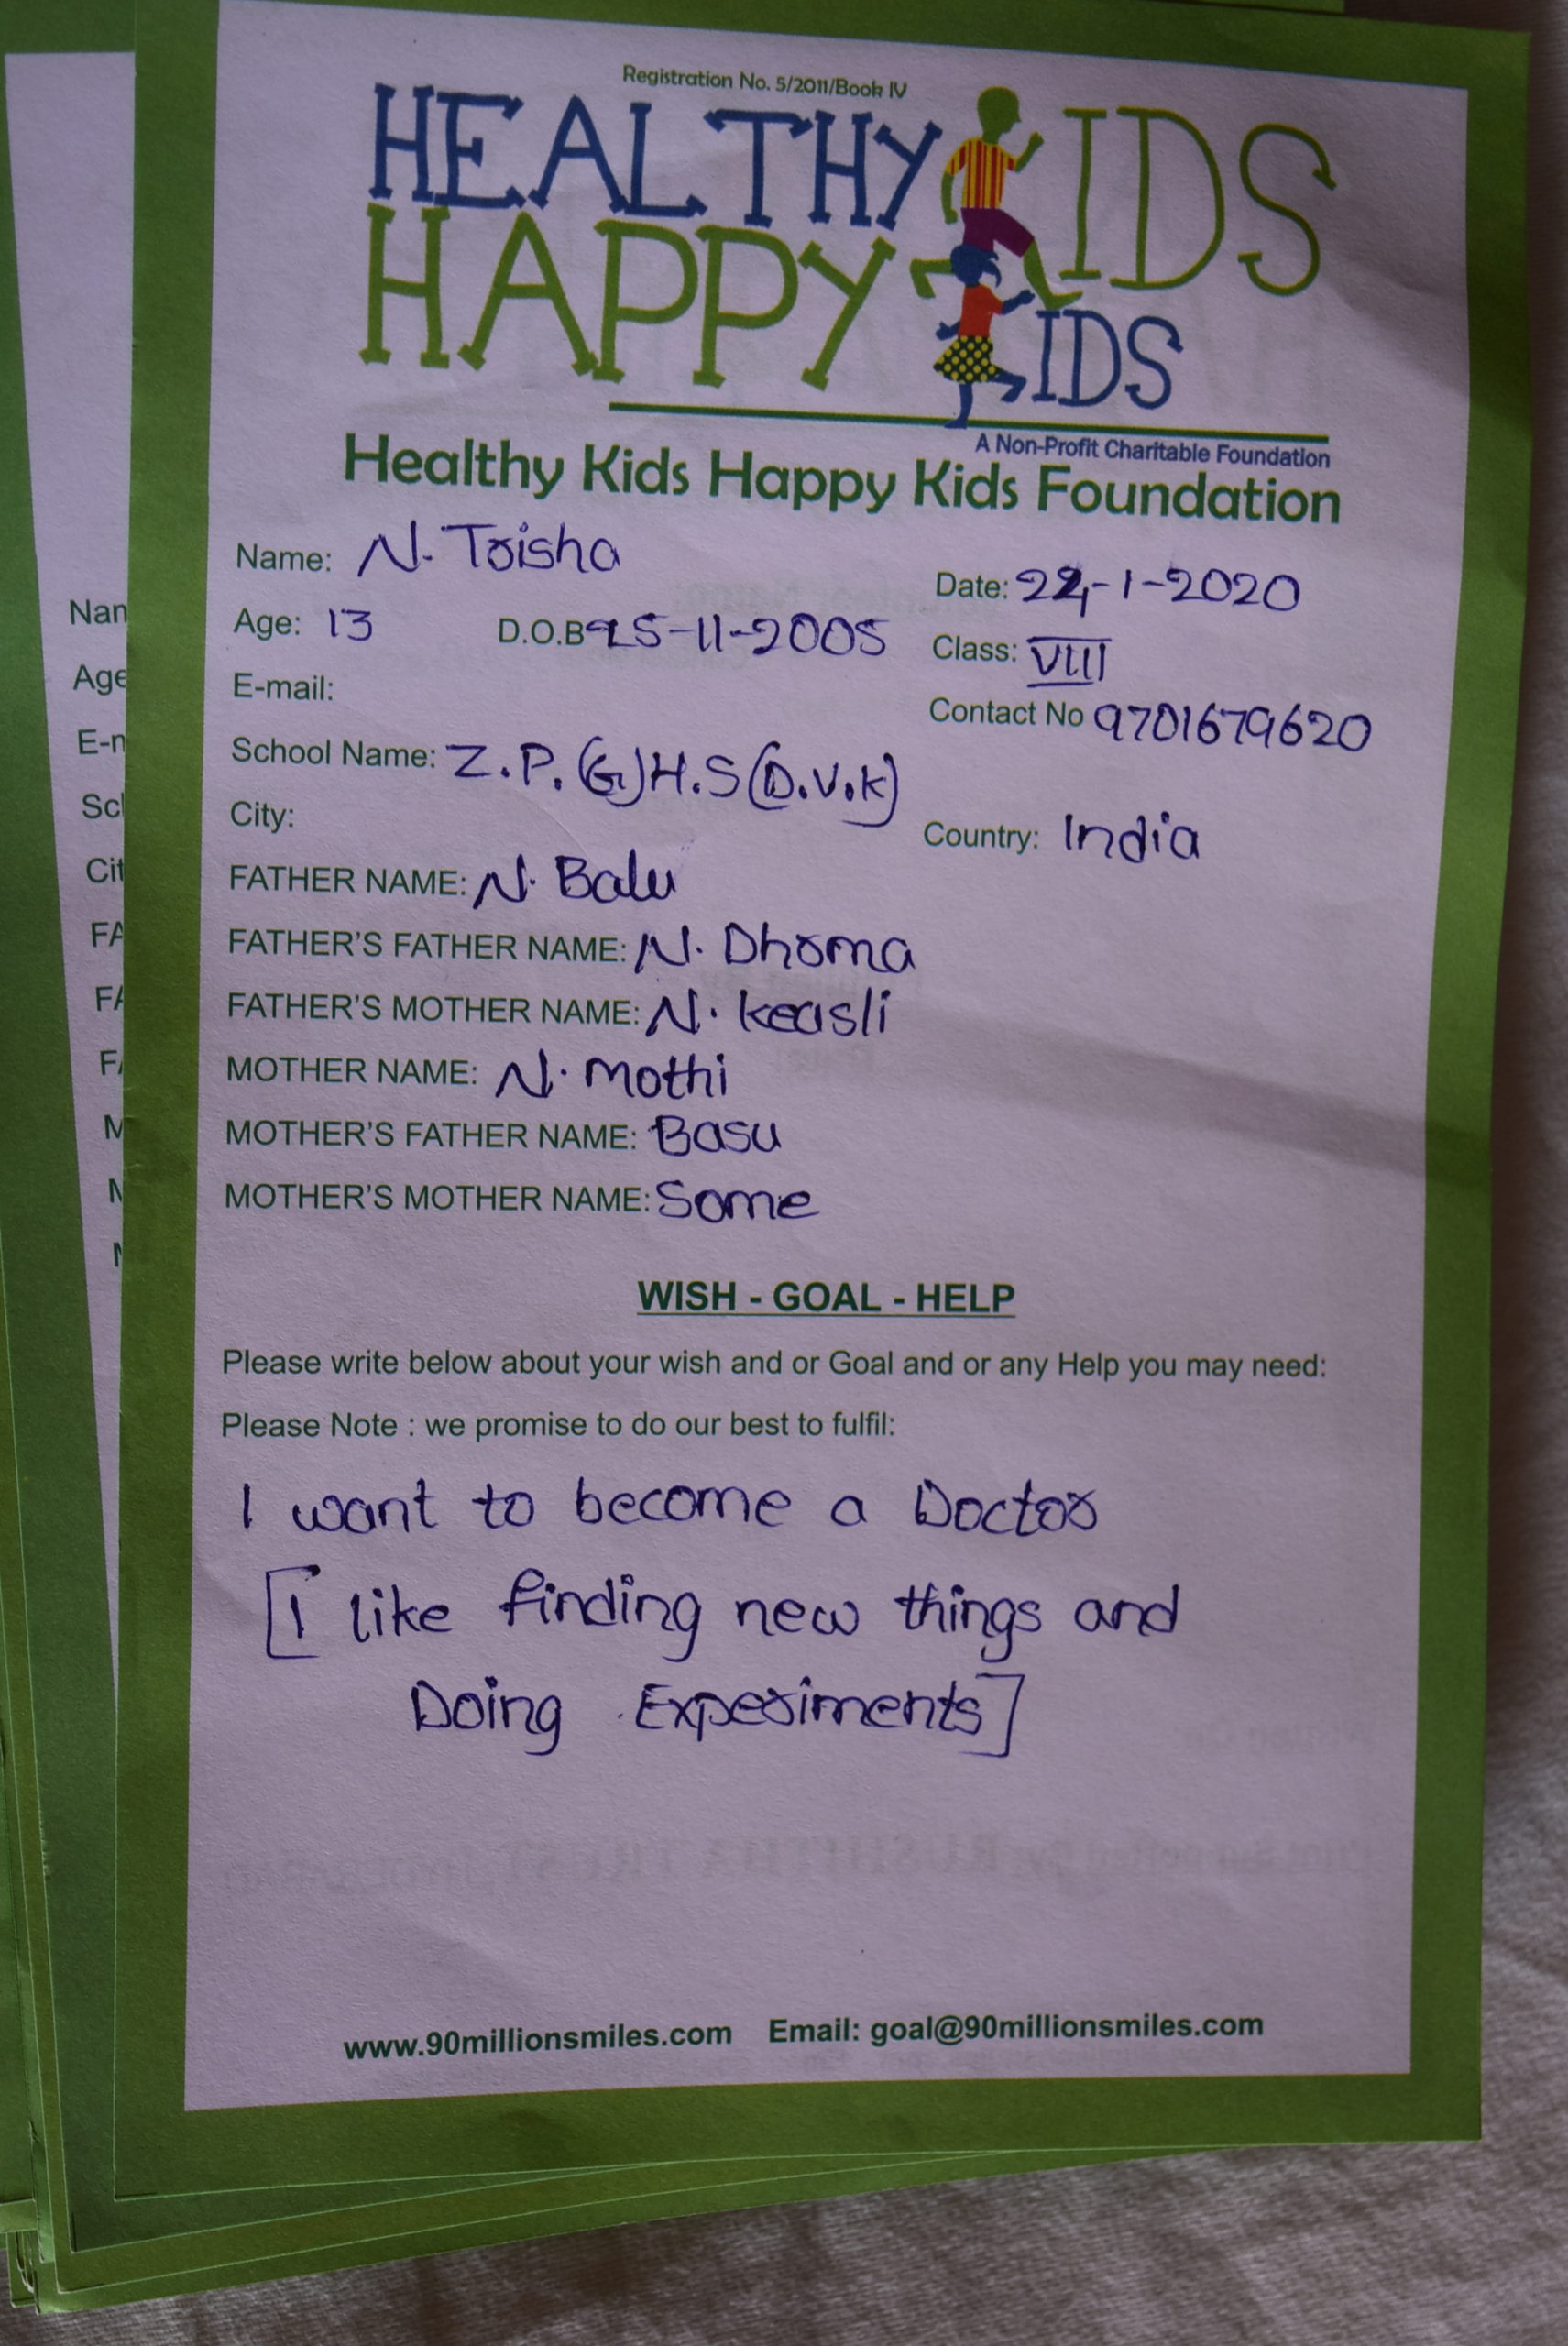 Registration No. 5/2011/Book IV
HEALTHY KIDS
HAPPY KIDS
A Non-Profit Charitable Foundation
Healthy Kids Happy Kids Foundation
Name: N. Trisha
Date: 22-1-2020
Age: 13 D.O.B 25-11-2005
Class: VIII
E-mail:
Contact No 9701679620
School Name: Z.P.(G)H.S(D.V.K)
City:
Country: India
FATHER NAME: N. Balu
FATHER'S FATHER NAME: N. Dhrma
FATHER'S MOTHER NAME: N. keasli
MOTHER NAME: N. mothi
MOTHER'S FATHER NAME: Basu
MOTHER'S MOTHER NAME: Some
WISH - GOAL - HELP
Please write below about your wish and or Goal and or any Help you may need:
Please Note : we promise to do our best to fulfil:
I want to become a Doctor
[I like finding new things and
Doing Experiments]
www.90millionsmiles.com Email: goal@90millionsmiles.com